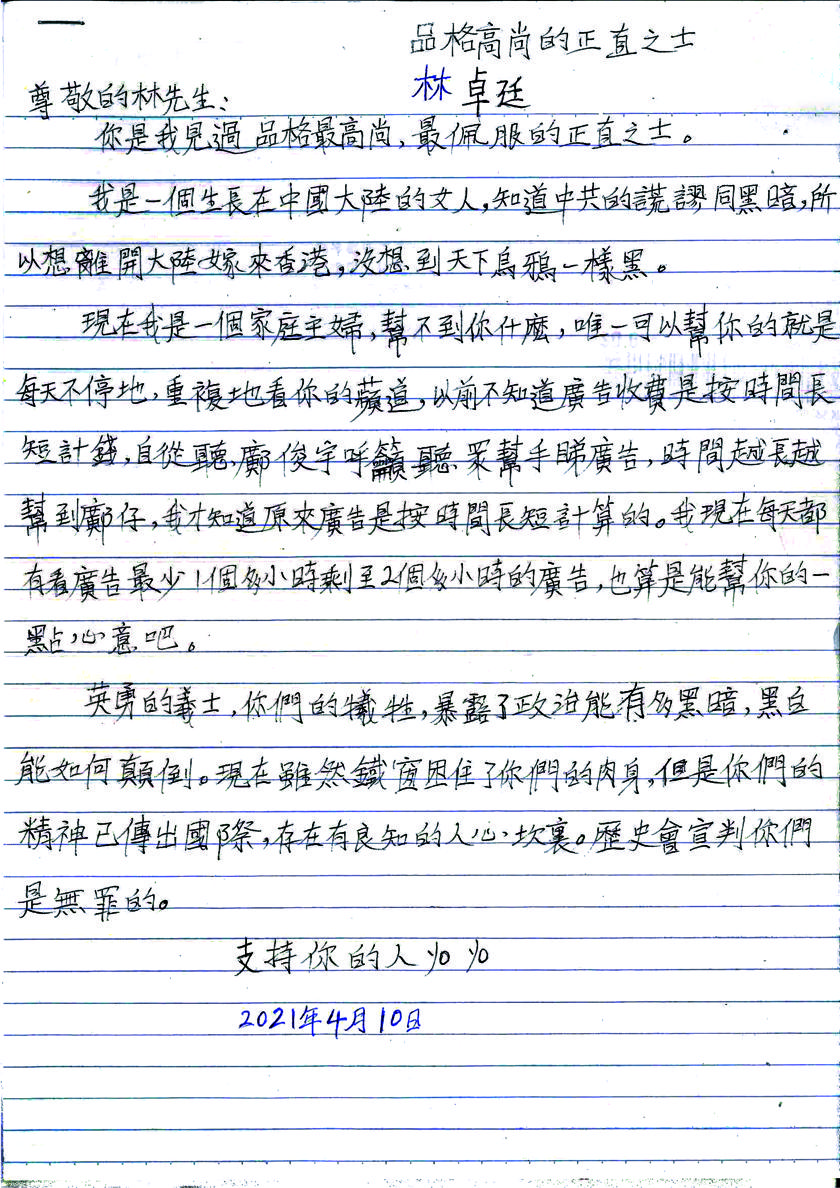 品格高尚的正直之士
林卓廷
尊敬的林先生：
你是我見過品格最高尚，最佩服的正直之士。
我是一個生長在中國大陸的女人，知道中共的謊謬同黑暗，所
以想離開大陸嫁來香港，沒想到天下烏鴉一樣黑。
現在我是一個家庭主婦，幫不到你什麼，唯一可以幫你的就是
每天不停地，重複地看你的蘋道，以前不知道廣告收費是按時間長
短計錢，自從聽鄺俊宇呼籲聽眾幫手睇廣告，時間越長越
幫到鄺仔，我才知道原來廣告是按時間長短計算的。我現在每天都
有看廣告最少1個多小時剩至2個多小時的廣告，也算是能幫你的一
點心意吧。
英勇的義士，你們的犧牲，暴露了政治能有多黑暗，黑白
能如何顛倒。現在雖然鐵窗困住了你們的肉身，但是你們的
精神已傳出國際，存在有良知的人心坎裏。歷史會宣判你們
是無罪的。
支持你的人yo yo
2021年4月10日